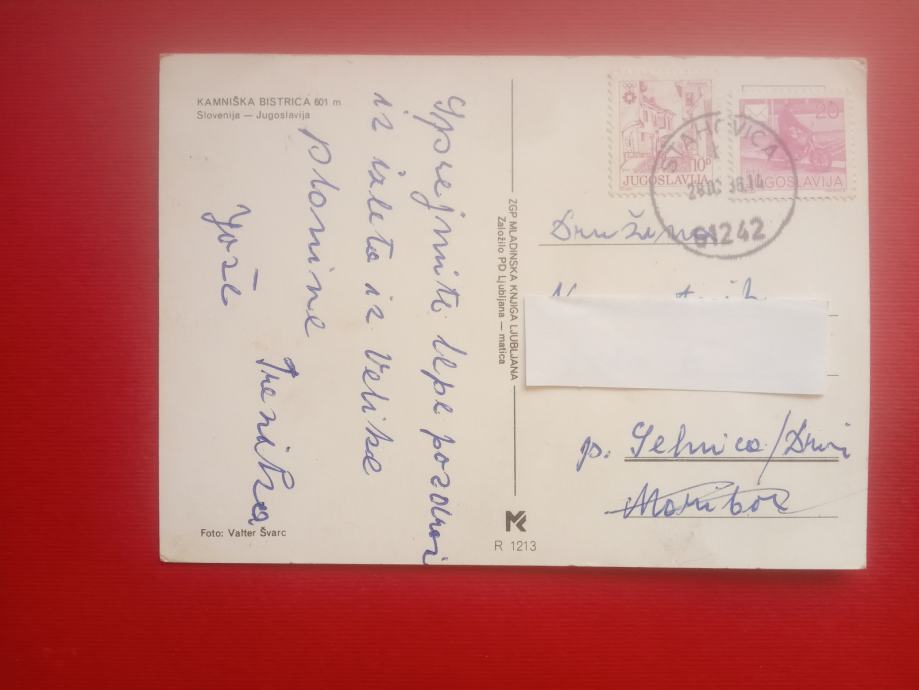 KAMNIŠKA BISTRICA 601 m
Slovenija — Jugoslavija
Sprejmite lepe pozdrave
iz izleta iz Velike
planine
Jože
Foto: Valter Švarc
ZGP MLADINSKA KNJIGA LJUBLJANA
Založilo PD Ljubljana — matica
MK
R 1213
10
JUGOSLAVIJA
20
JUGOSLAVIJA
STAHOVICA
61242
Družina
p. Selnica/Dravi
Maribor